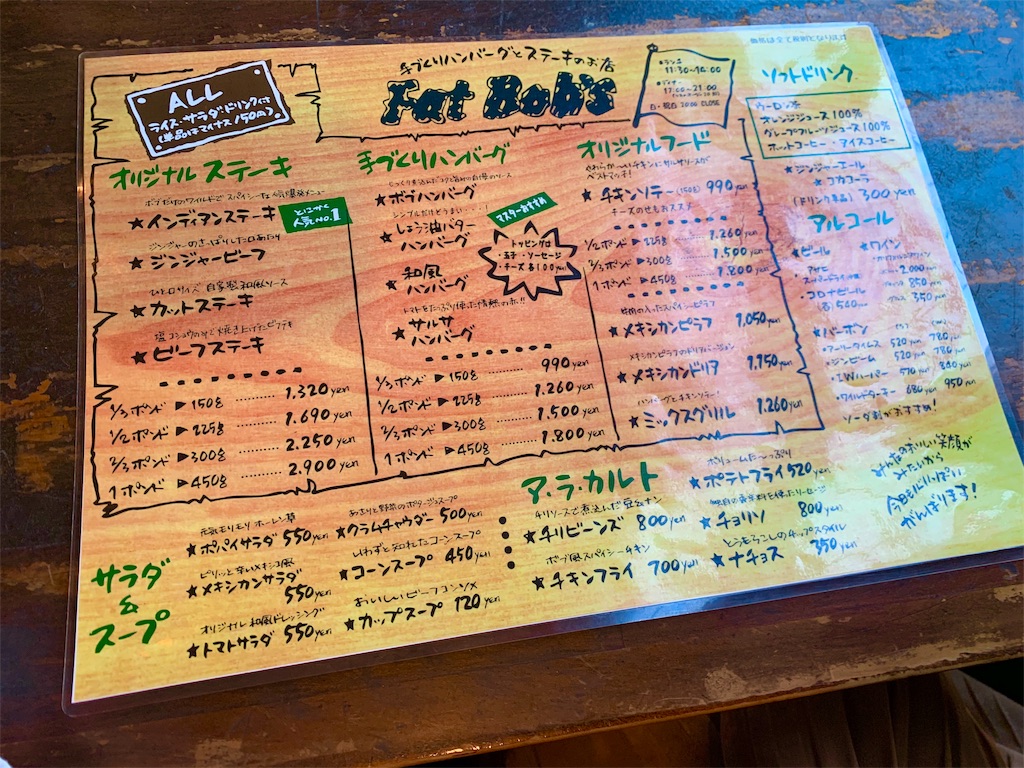 価格は全て税別となります
手づくりハンバーグとステーキのお店
Fat Bob's
ALL
ライス・サラダ・ドリンク付
(単品はマイナス150円)
●ランチ
11:30-16:00
●ディナー
17:00~21:00
日・祝日 20:00 CLOSE
オリジナルステーキ
★インディアンステーキ
とにかく
人気NO.1
ジンジャーのさっぱりした口あたり
★ジンジャービーフ
ひと口サイズ 自家製和風ソース
★カットステーキ
★ビーフステーキ
1/3ポンド ▶150g ……… 1.320 yen
1/2ポンド ▶225g ……… 1.690 yen
2/3ポンド ▶300g ……… 2.250 yen
1ポンド ▶450g ……… 2.900 yen
手づくりハンバーグ
★ボブハンバーグ
シンプルだけどうまい・・・!
★しょう油バター
ハンバーグ
マスターおすすめ
トッピング
・玉子・ソーセージ
・チーズ 各100yen
★和風
ハンバーグ
トマトをたっぷり使った情熱の赤!!
★サルサ
ハンバーグ
1/3ポンド ▶150g ……… 990 yen
1/2ポンド ▶225g ……… 1.260 yen
2/3ポンド ▶300g ……… 1.500 yen
1ポンド ▶450g ……… 1.800 yen
オリジナルフード
やわらか〜いチキンにサルサソースが
ベストマッチ!
★チキンソテー(150g) 990 yen
チーズのせもおススメ
1/2ポンド ▶225g ……… 1.260 yen
2/3ポンド ▶300g ……… 1.500 yen
1ポンド ▶450g ……… 1.800 yen
牛肉の入ったスパイシーピラフ
★メキシカンピラフ 1,050 yen
メキシカンピラフのドリアバージョン
★メキシカンドリア 1,150 yen
ハンバーグとチキンソテー!
★ミックスグリル 1,260 yen
ソフトドリンク
ウーロン茶
オレンジジュース100%
グレープフルーツジュース100%
ホットコーヒー・アイスコーヒー
★ジンジャーエール
★コカコーラ
(ドリンク単品) 300 yen
アルコール
★ビール
アサヒ
スーパードライ中瓶
・コロナビール
(各) 540 yen
★ワイン
2,000 yen
850 yen
グラス 350 yen
★バーボン
・アーリータイムス 520 yen 780 yen
・ジンビーム 520 yen 780 yen
・I.W.ハーパー 570 yen 840 yen
・ワイルドターキー 680 yen 950 yen
ソーダ割がおすすめ!
みんなのおいしい笑顔が
みたいから
今日もがんばります!
サラダ
&
スープ
元気モリモリ ホーレン草
★ポパイサラダ 550 yen
ピリッと辛いメキシコ風
★メキシカンサラダ
550 yen
オリジナル和風ドレッシング
★トマトサラダ 550 yen
あさりと野菜のポタージュスープ
★クラムチャウダー 500 yen
いわずと知れたコーンスープ
★コーンスープ 450 yen
おいしいビーフコンソメ
★カップスープ 120 yen
ア・ラ・カルト
★チリビーンズ 800 yen
ボブ風スパイシーチキン
★チキンフライ 700 yen
ボリュームた〜っぷり
★ポテトフライ 520 yen
★チョリソ 800 yen
とうもろこしのチップスタイル
★ナチョス 350 yen